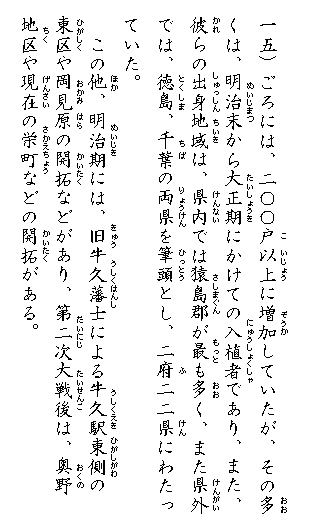 一五）ごろには、二〇〇戸以上に増加していたが、その多
くは、明治末から大正期にかけての入植者であり、また、
彼らの出身地域は、県内では猿島郡が最も多く、また県外
では、徳島、千葉の両県を筆頭とし、二府二二県にわたっ
ていた。
この他、明治期には、旧牛久藩士による牛久駅東側の
東区や岡見原の開拓などがあり、第二次大戦後は、奥野
地区や現在の栄町などの開拓がある。